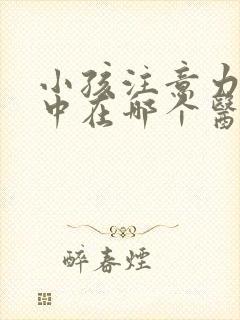 小孩注意力
中在哪个醫
醉春煙